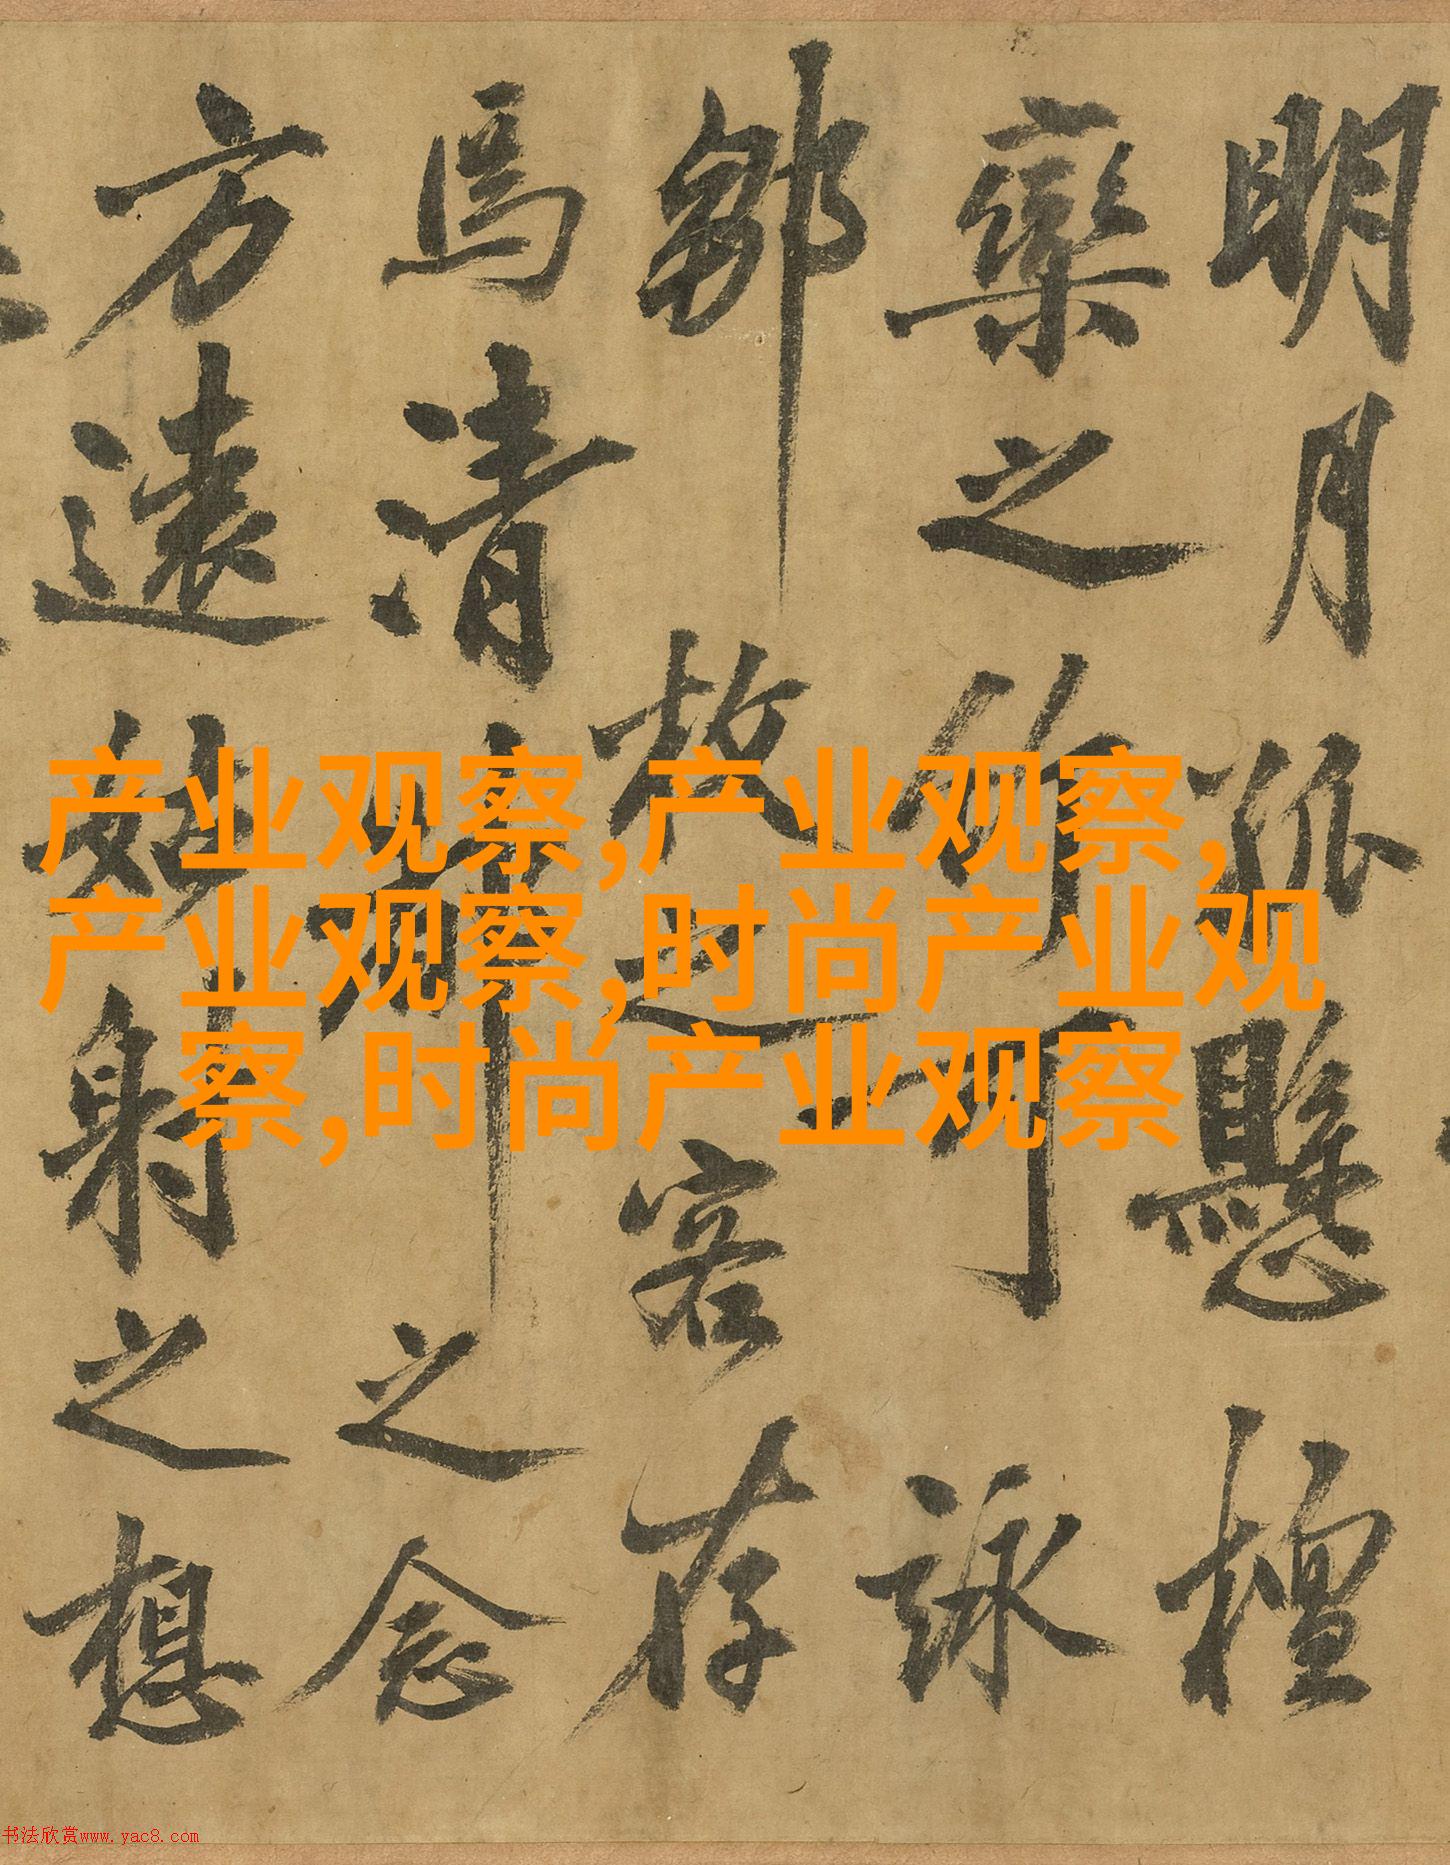 明月孤懸檀
欒之竹可詠
鄒枚之客存
焉清之念
方遠姑射之想
产业观察,产业观察,
产业观察,时尚产业观
察,时尚产业观察
书法欣赏www.yac8.com